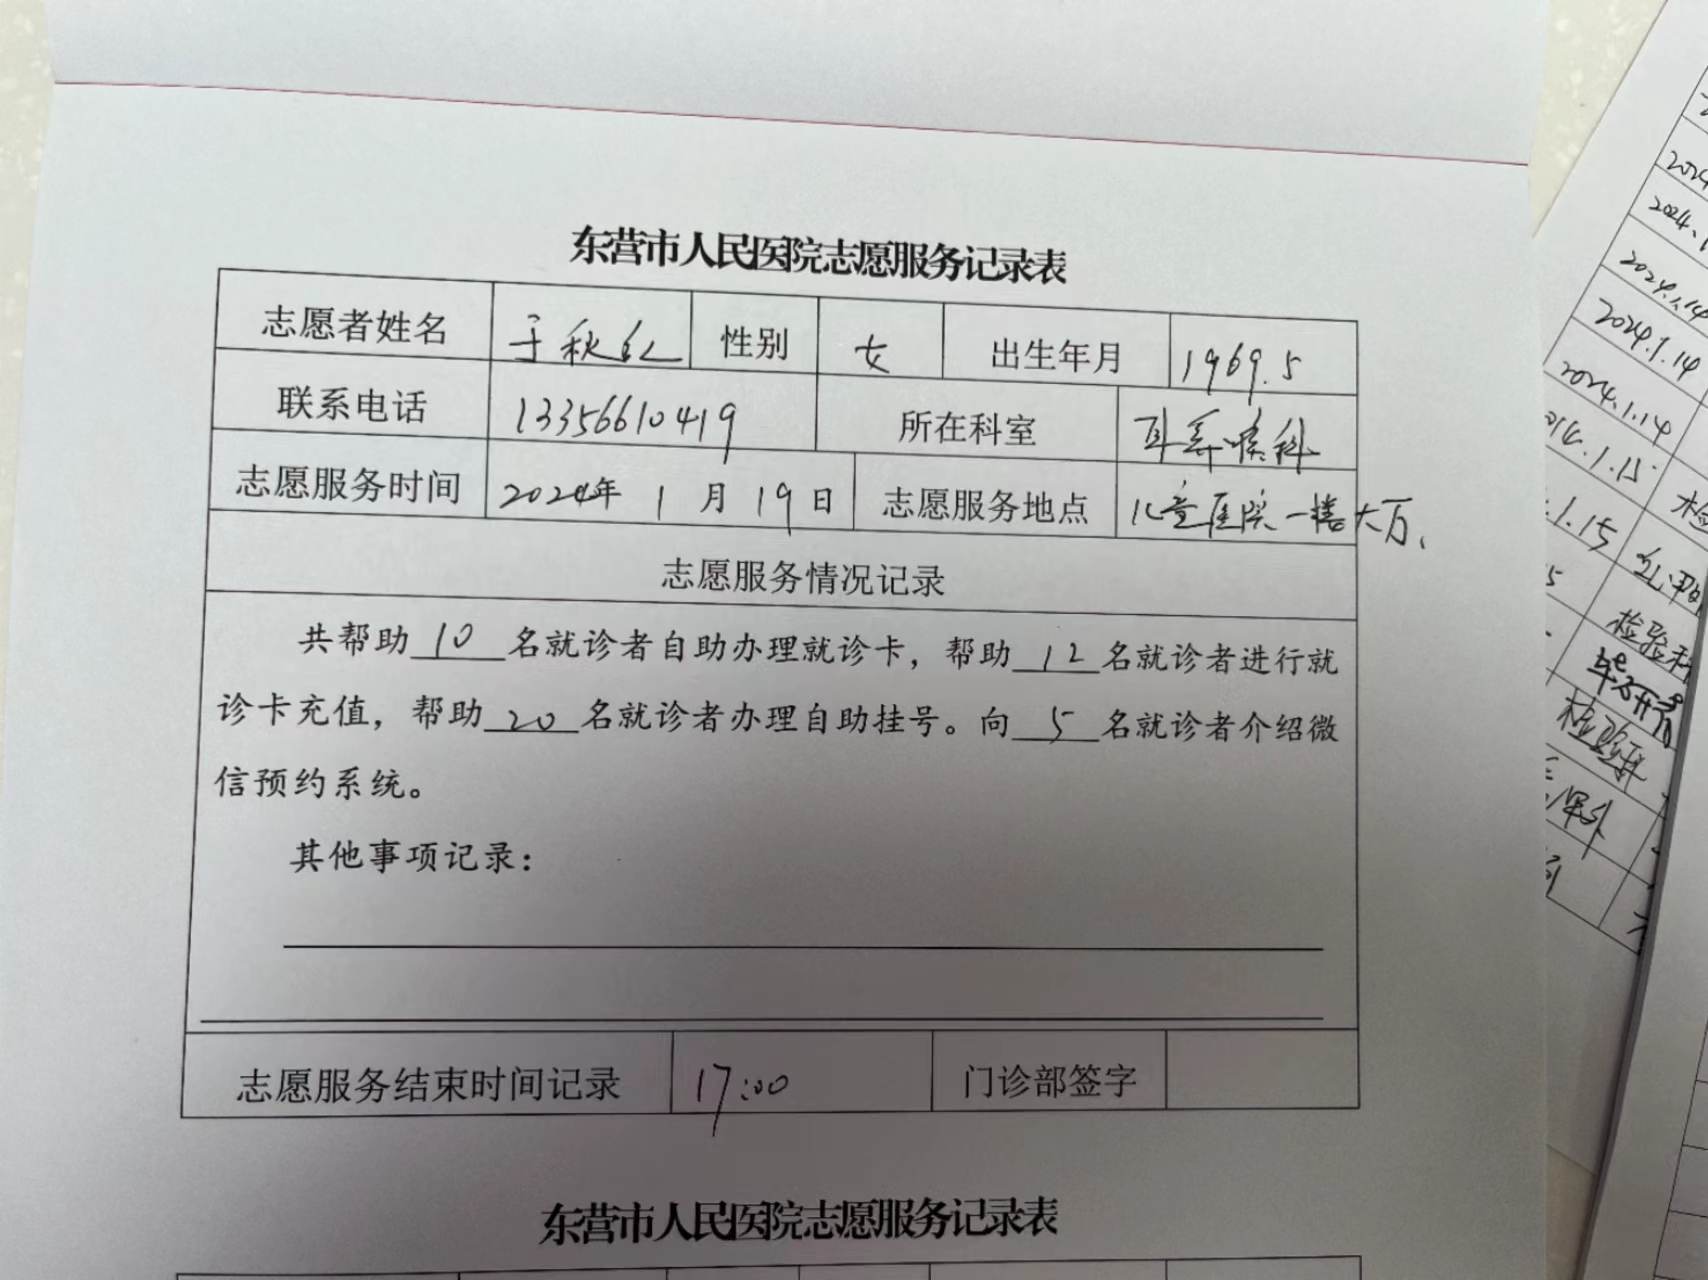 东营市人民医院志愿服务记录表
志愿者姓名 于秋红 性别 女 出生年月 1969.5
联系电话 13356610419 所在科室 耳鼻喉科
志愿服务时间 2024年 1 月 19 日 志愿服务地点 儿童医院一楼大厅、
志愿服务情况记录
共帮助 10 名就诊者自助办理就诊卡，帮助 12 名就诊者进行就
诊卡充值，帮助 20 名就诊者办理自助挂号。向 5 名就诊者介绍微
信预约系统。
其他事项记录：
志愿服务结束时间记录 17:00 门诊部签字
东营市人民医院志愿服务记录表
2024.1.14
2024.1.14
2024.1.14
1.15
1.15
检验科
检验科